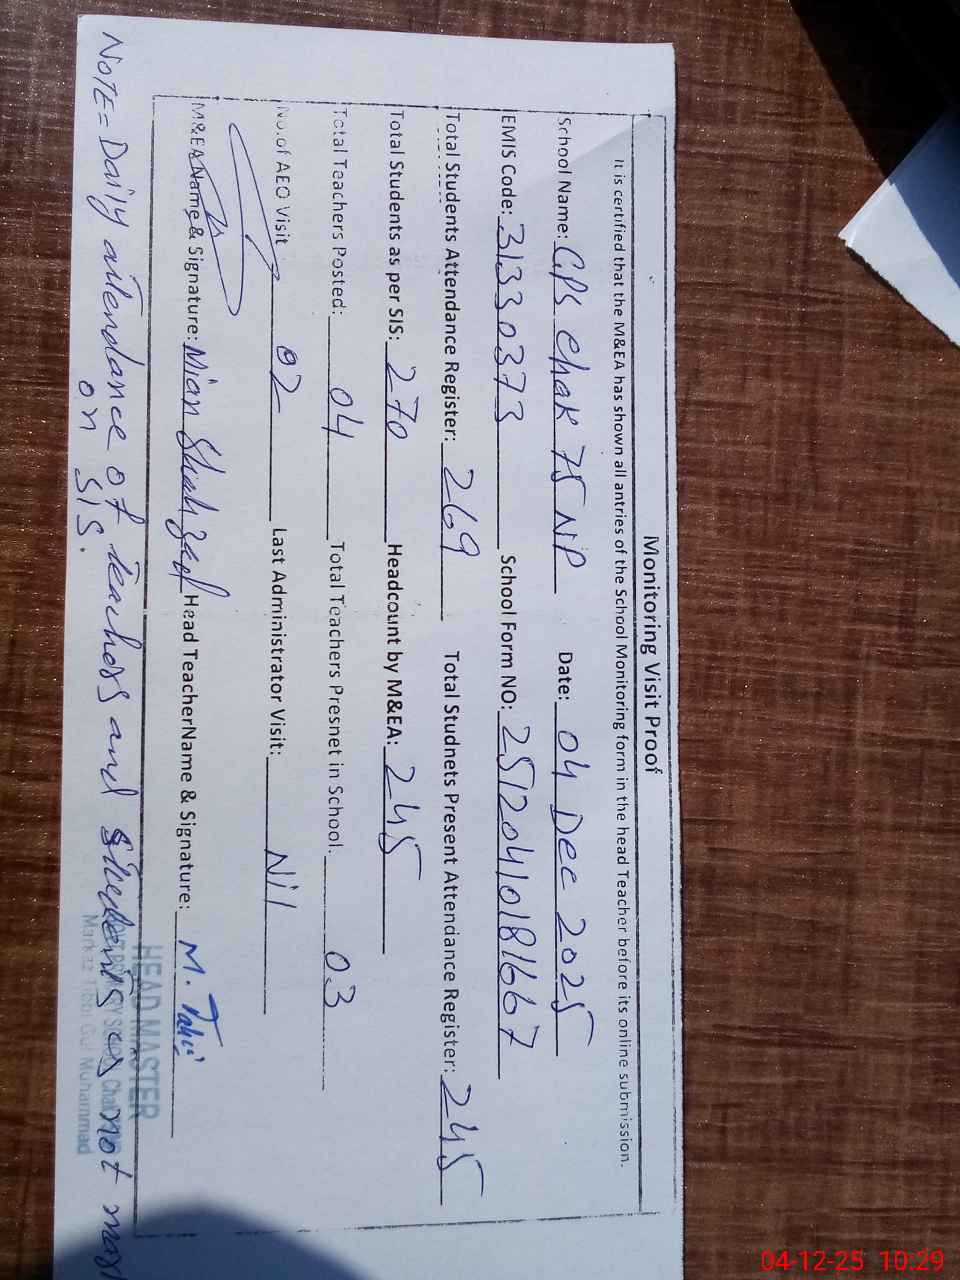 Monitoring Visit Proof
It is certified that the M&EA has shown all antries of the School Monitoring form in the head Teacher before its online submission.
School Name: GPS Chak 75 NP Date: 04 Dec 2025
EMIS Code: 31330373 School Form NO: 25120410181667
Total Students Attendance Register: 269 Total Studnets Present Attendance Register: 245
Total Students as per SIS: 270 Headcount by M&EA: 245
Total Teachers Posted: 04 Total Teachers Presnet in School: 03
No of AEO Visit 02 Last Administrator Visit: Nil
M&EA Name & Signature: Mian Shahzad Head TeacherName & Signature: M. Tahir
HEAD MASTER
PRIMARY SCHOOL Chak
Markaz Tibbi Gul Muhammad
NOTE = Daily attendance of teachers and students is not
on SIS.
04-12-25 10:29